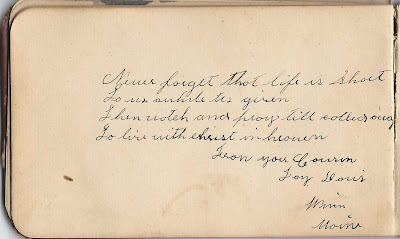 Never forget that life is Short
To us while tis given
Then watch and pray till called away
To live with christ in heaven
From you Cousin
Fay Davis
Winn
Maine